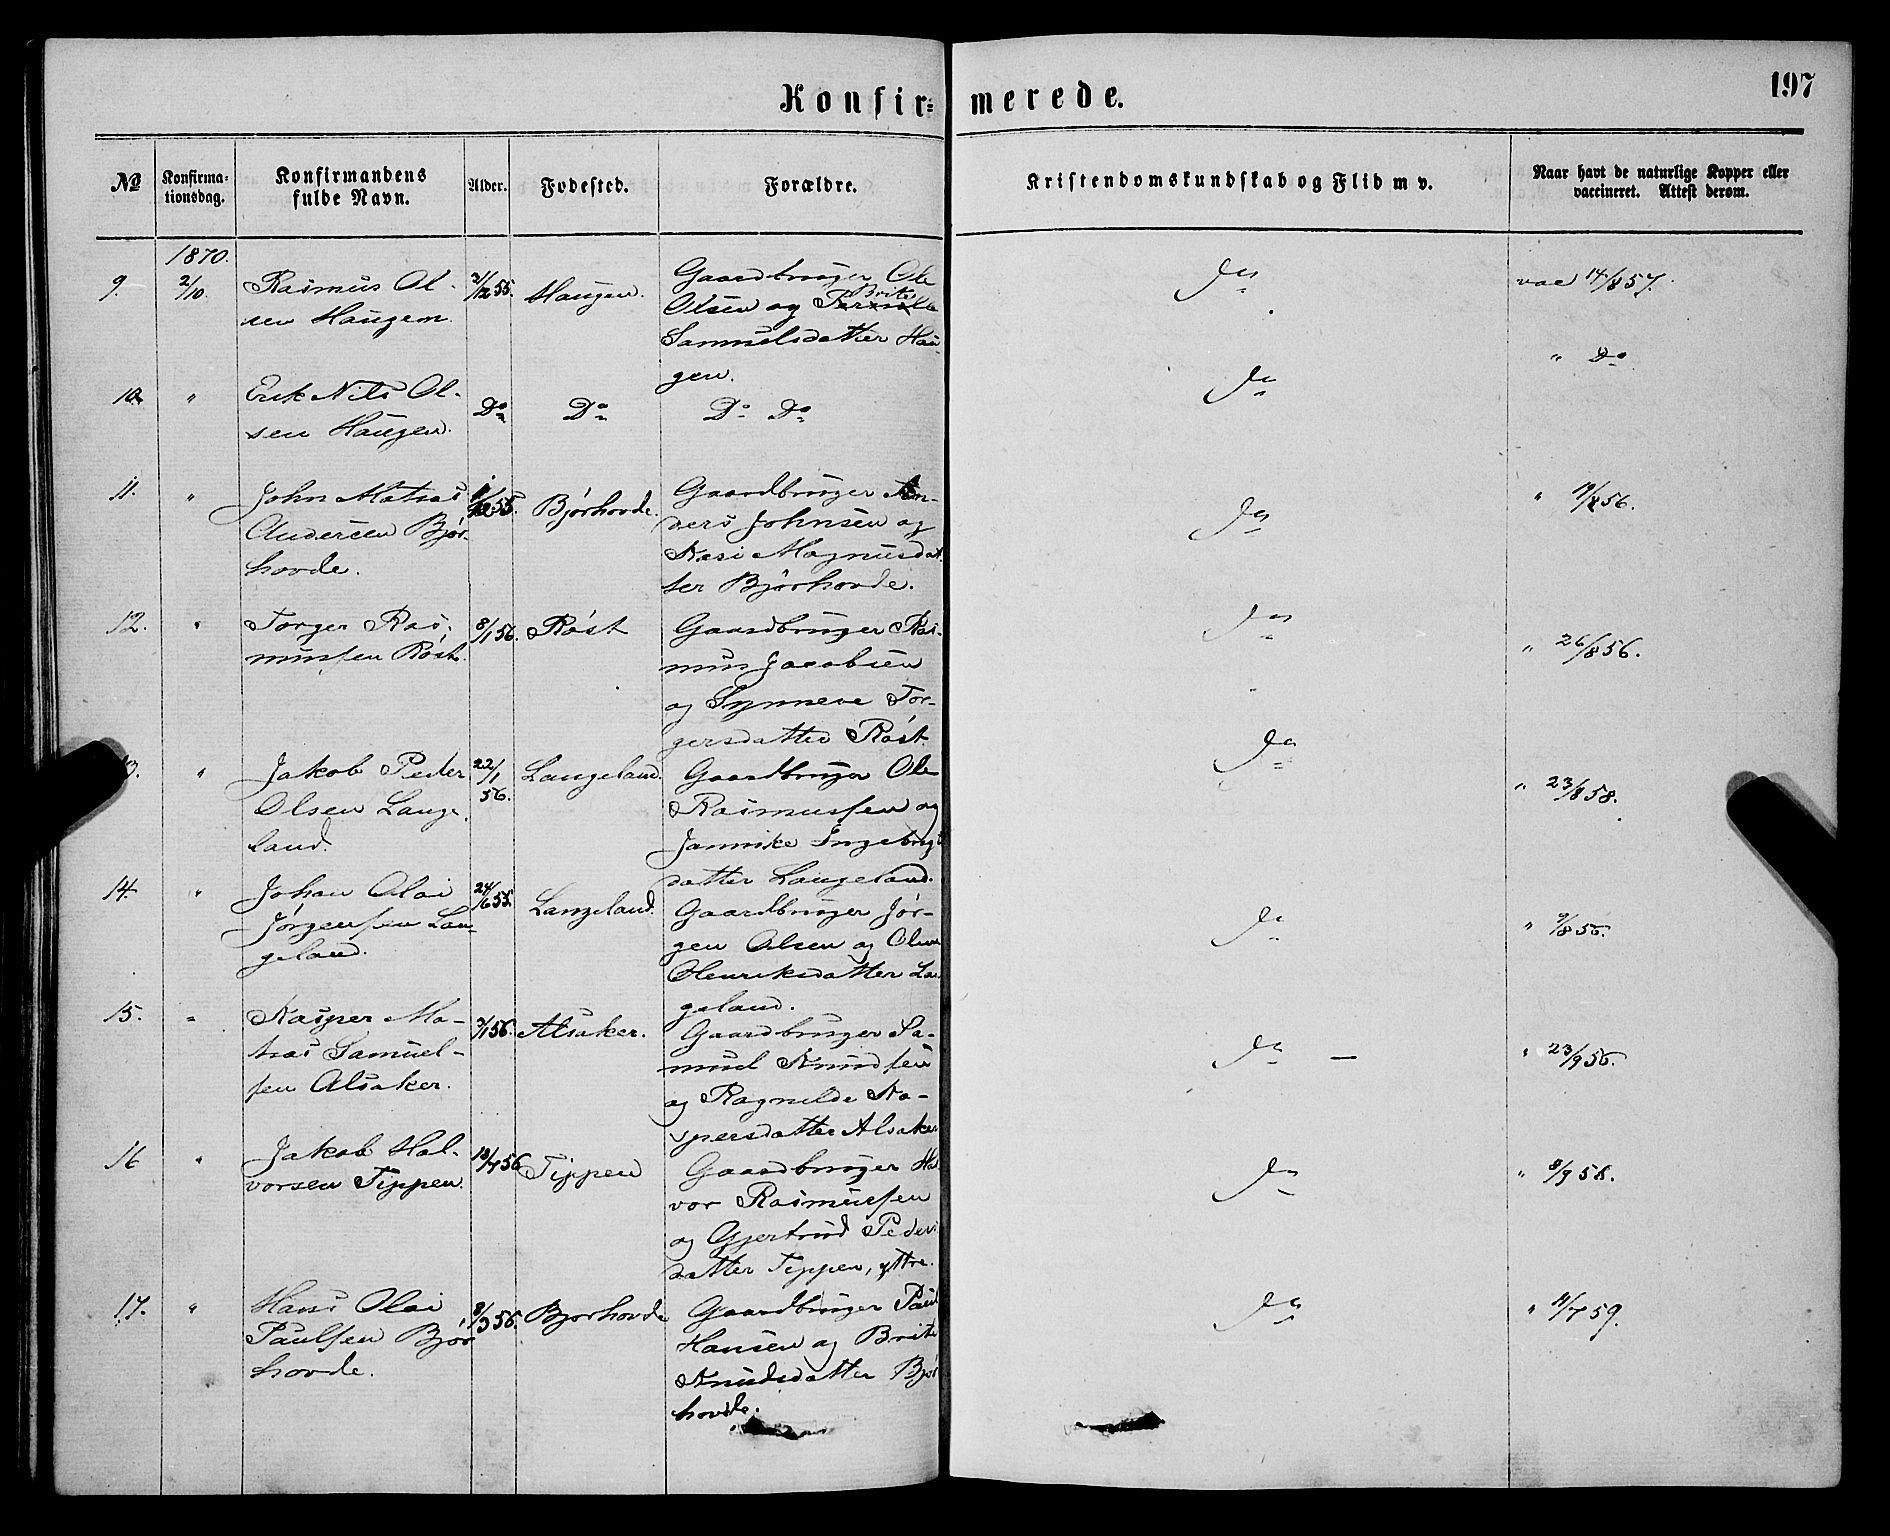 Konfirmerede.
197
№
Konfirma-
tionsdag.
Konfirmandens
fulde Navn.
Alder.
Fodested.
Forældre.
Kristendomskundskab og Flid m v.
Naar havt de naturlige Kopper eller
vaccineret. Attest derom.
1870.
9. 2/10. Rasmus Ol-
sen Haugen
31/12 55. Haugen.
Gaardbruger Ole
Brite
Olsen og Pernille
Samuelsdatter Hau-
gen.
Do
vac 14/8 57.
10. " Erik Nils Ol-
sen Haugen.
Do Do Do Do
Do
" Do
11. " John Matias
Andersen Bjør-
hovde.
55. Bjørhovde.
Gaardbruger An-
ders Johnsen og
Kasi Magnusdat-
ter Bjørhovde.
Do
" 19/8 56.
12. " Torger Ras-
mussen Røst.
8/1 56. Røst
Gaardbruger Ras-
mus Jacobsen
og Synneve Tor-
gersdatter Røst.
Do
" 26/8 56.
13. " Jakob Peder
Olsen Lange-
land.
22/1
56.
Langeland.
Gaardbruger Ole
Rasmussen og
Jannike Ingebrigt
datter Langeland.
Do
" 23/8 58.
14. " Johan Olai
Jørgensen Lan-
geland.
24/6 55. Langeland.
Gaardbruger Jør-
gen Olsen og Oline
Henriksdatter Lan
geland.
Do
" 9/8 56.
15. " Kasper Ma-
tias Samuel-
sen Alsaker.
3/1 56. Alsaker.
Gaardbruger Sa-
muel Knudsen
og Ragnilde Ka-
spersdatter Alsaker
Do —
" 23/9 56.
16 " Jakob Hal-
vorsen Tippen.
18/7 56 Tippen
Gaardbruger Hal
vor Rasmussen
og Gjertrud Peders
datter Tippen, yttre.
Do
" 8/9 58.
17. " Hans Olai
Paulsen Bjør
hovde.
8/3 56. Bjorhovde
Gaardbruger Paul
Hansen og Brite
Knudsdatter Bjør
hovde.
Do
" 11/7 59.